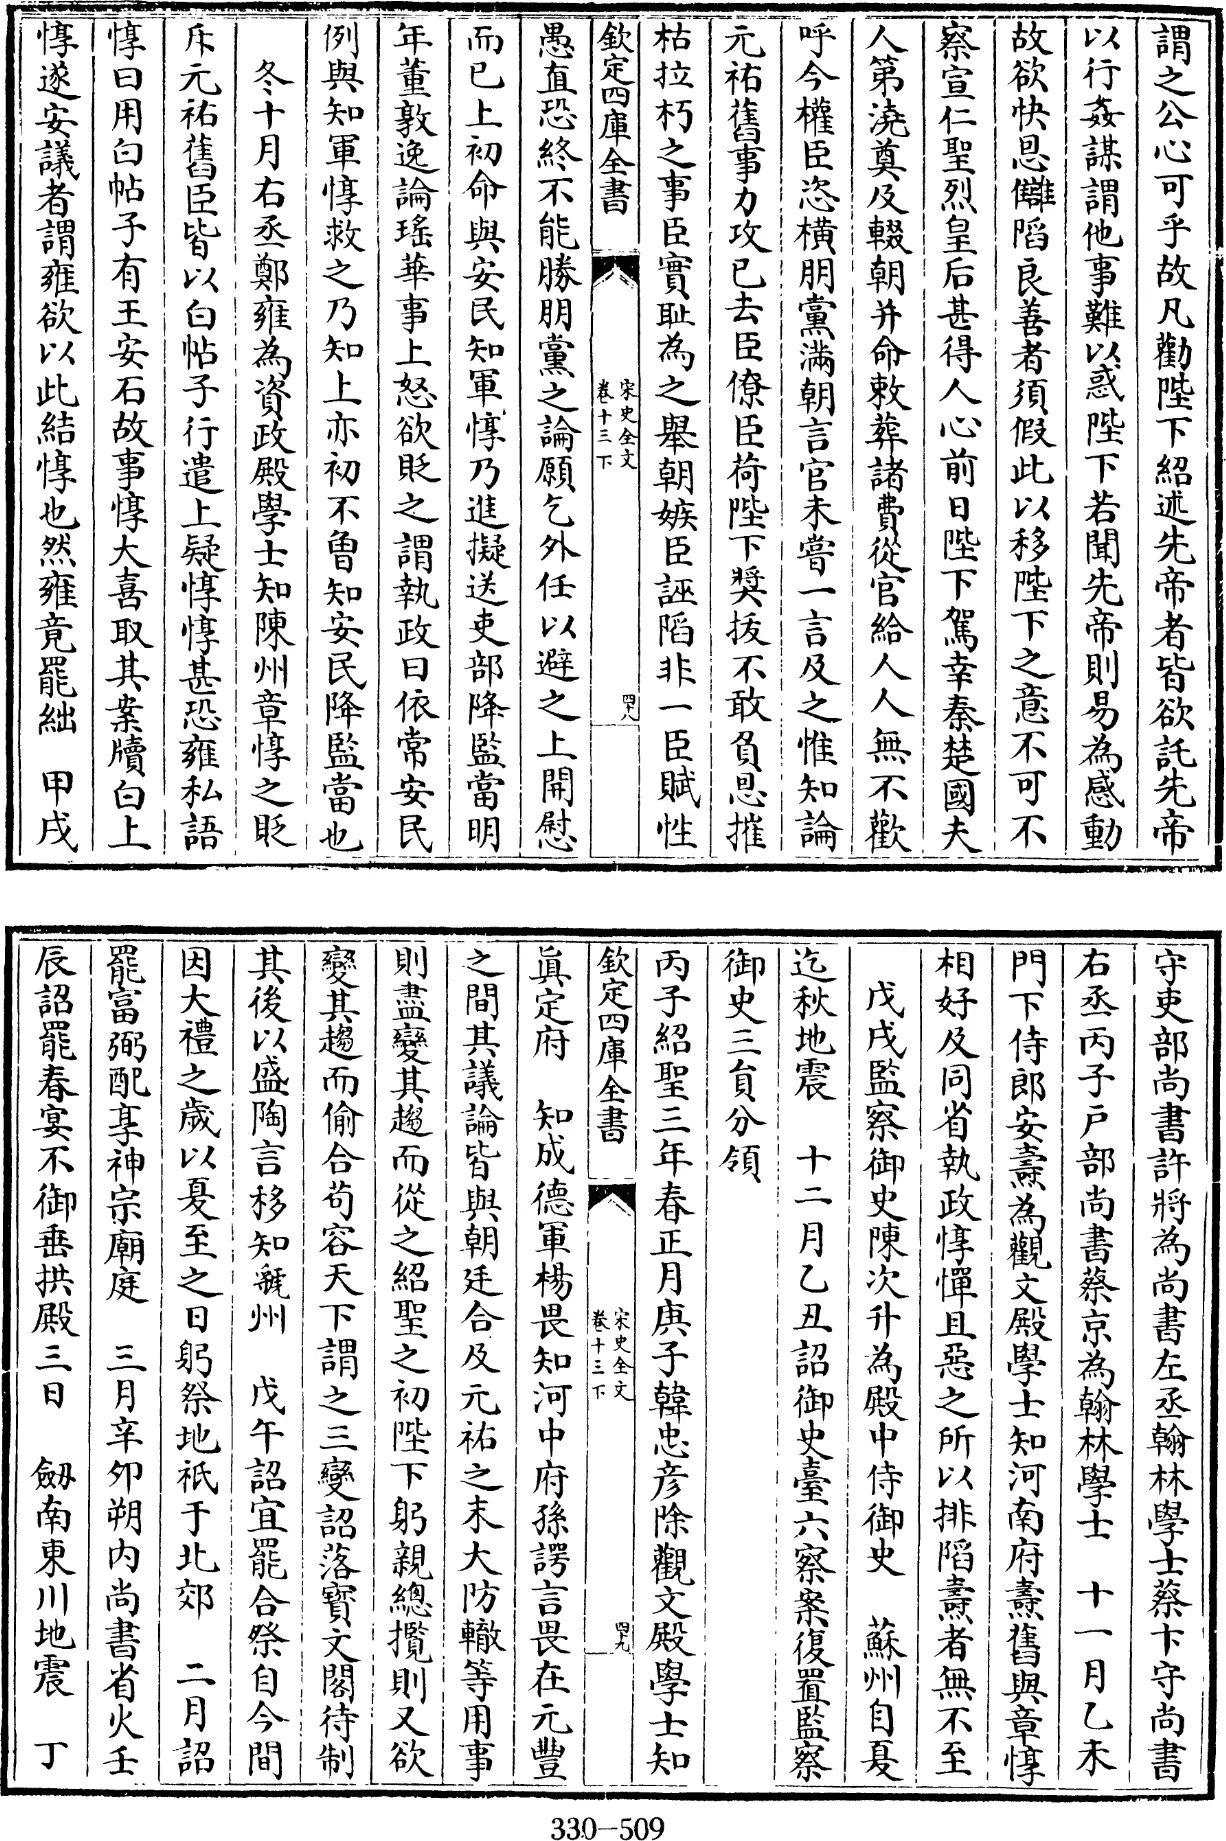 謂之公心可乎故凡勸陛下紹述先帝者皆欲託先帝
以行姦謀謂他事難以惑陛下若聞先帝則易為感動
故欲快恩讎陷良善者須假此以移陛下之意不可不
察宣仁聖烈皇后甚得人心前日陛下駕幸秦楚國夫
人第澆奠及輟朝并命敕葬諸費從官給人人無不歡
呼今權臣恣橫朋黨滿朝言官未嘗一言及之惟知論
元祐舊事力攻已去臣僚臣荷陛下奬拔不敢負恩摧
枯拉朽之事臣實恥為之舉朝嫉臣誣陷非一臣賦性
欽定四庫全書
宋史全文
卷十三下
四十八
愚直恐終不能勝朋黨之論願乞外任以避之上開慰
而已上初命與安民知軍惇乃進擬送吏部降監當明
年董敦逸論瑤華事上怒欲貶之謂執政曰依常安民
例與知軍惇救之乃知上亦初不曾知安民降監當也
冬十月右丞鄭雍為資政殿學士知陳州章惇之貶
斥元祐舊臣皆以白帖子行遣上疑惇惇甚恐雍私語
惇曰用白帖子有王安石故事惇大喜取其案牘白上
惇遂安議者謂雍欲以此結惇也然雍竟罷絀　甲戌
守吏部尚書許將為尚書左丞翰林學士蔡卞守尚書
右丞丙子戶部尚書蔡京為翰林學士　十一月乙未
門下侍郎安燾為觀文殿學士知河南府燾舊與章惇
相好及同省執政惇憚且惡之所以排陷燾者無不至
戊戌監察御史陳次升為殿中侍御史　蘇州自夏
迄秋地震　十二月乙丑詔御史臺六察案復置監察
御史三員分領
丙子紹聖三年春正月庚子韓忠彥除觀文殿學士知
欽定四庫全書
宋史全文
卷十三下
四十九
眞定府　知成德軍楊畏知河中府孫諤言畏在元豐
之間其議論皆與朝廷合及元祐之末大防轍等用事
則盡變其趨而從之紹聖之初陛下躬親總攬則又欲
變其趨而偷合苟容天下謂之三變詔落寳文閣待制
其後以盛陶言移知虢州　戊午詔宜罷合祭自今間
因大禮之歲以夏至之日躬祭地祇于北郊　二月詔
罷富弼配享神宗廟庭　三月辛卯朔內尚書省火壬
辰詔罷春宴不御垂拱殿三日　劒南東川地震　丁
330-509